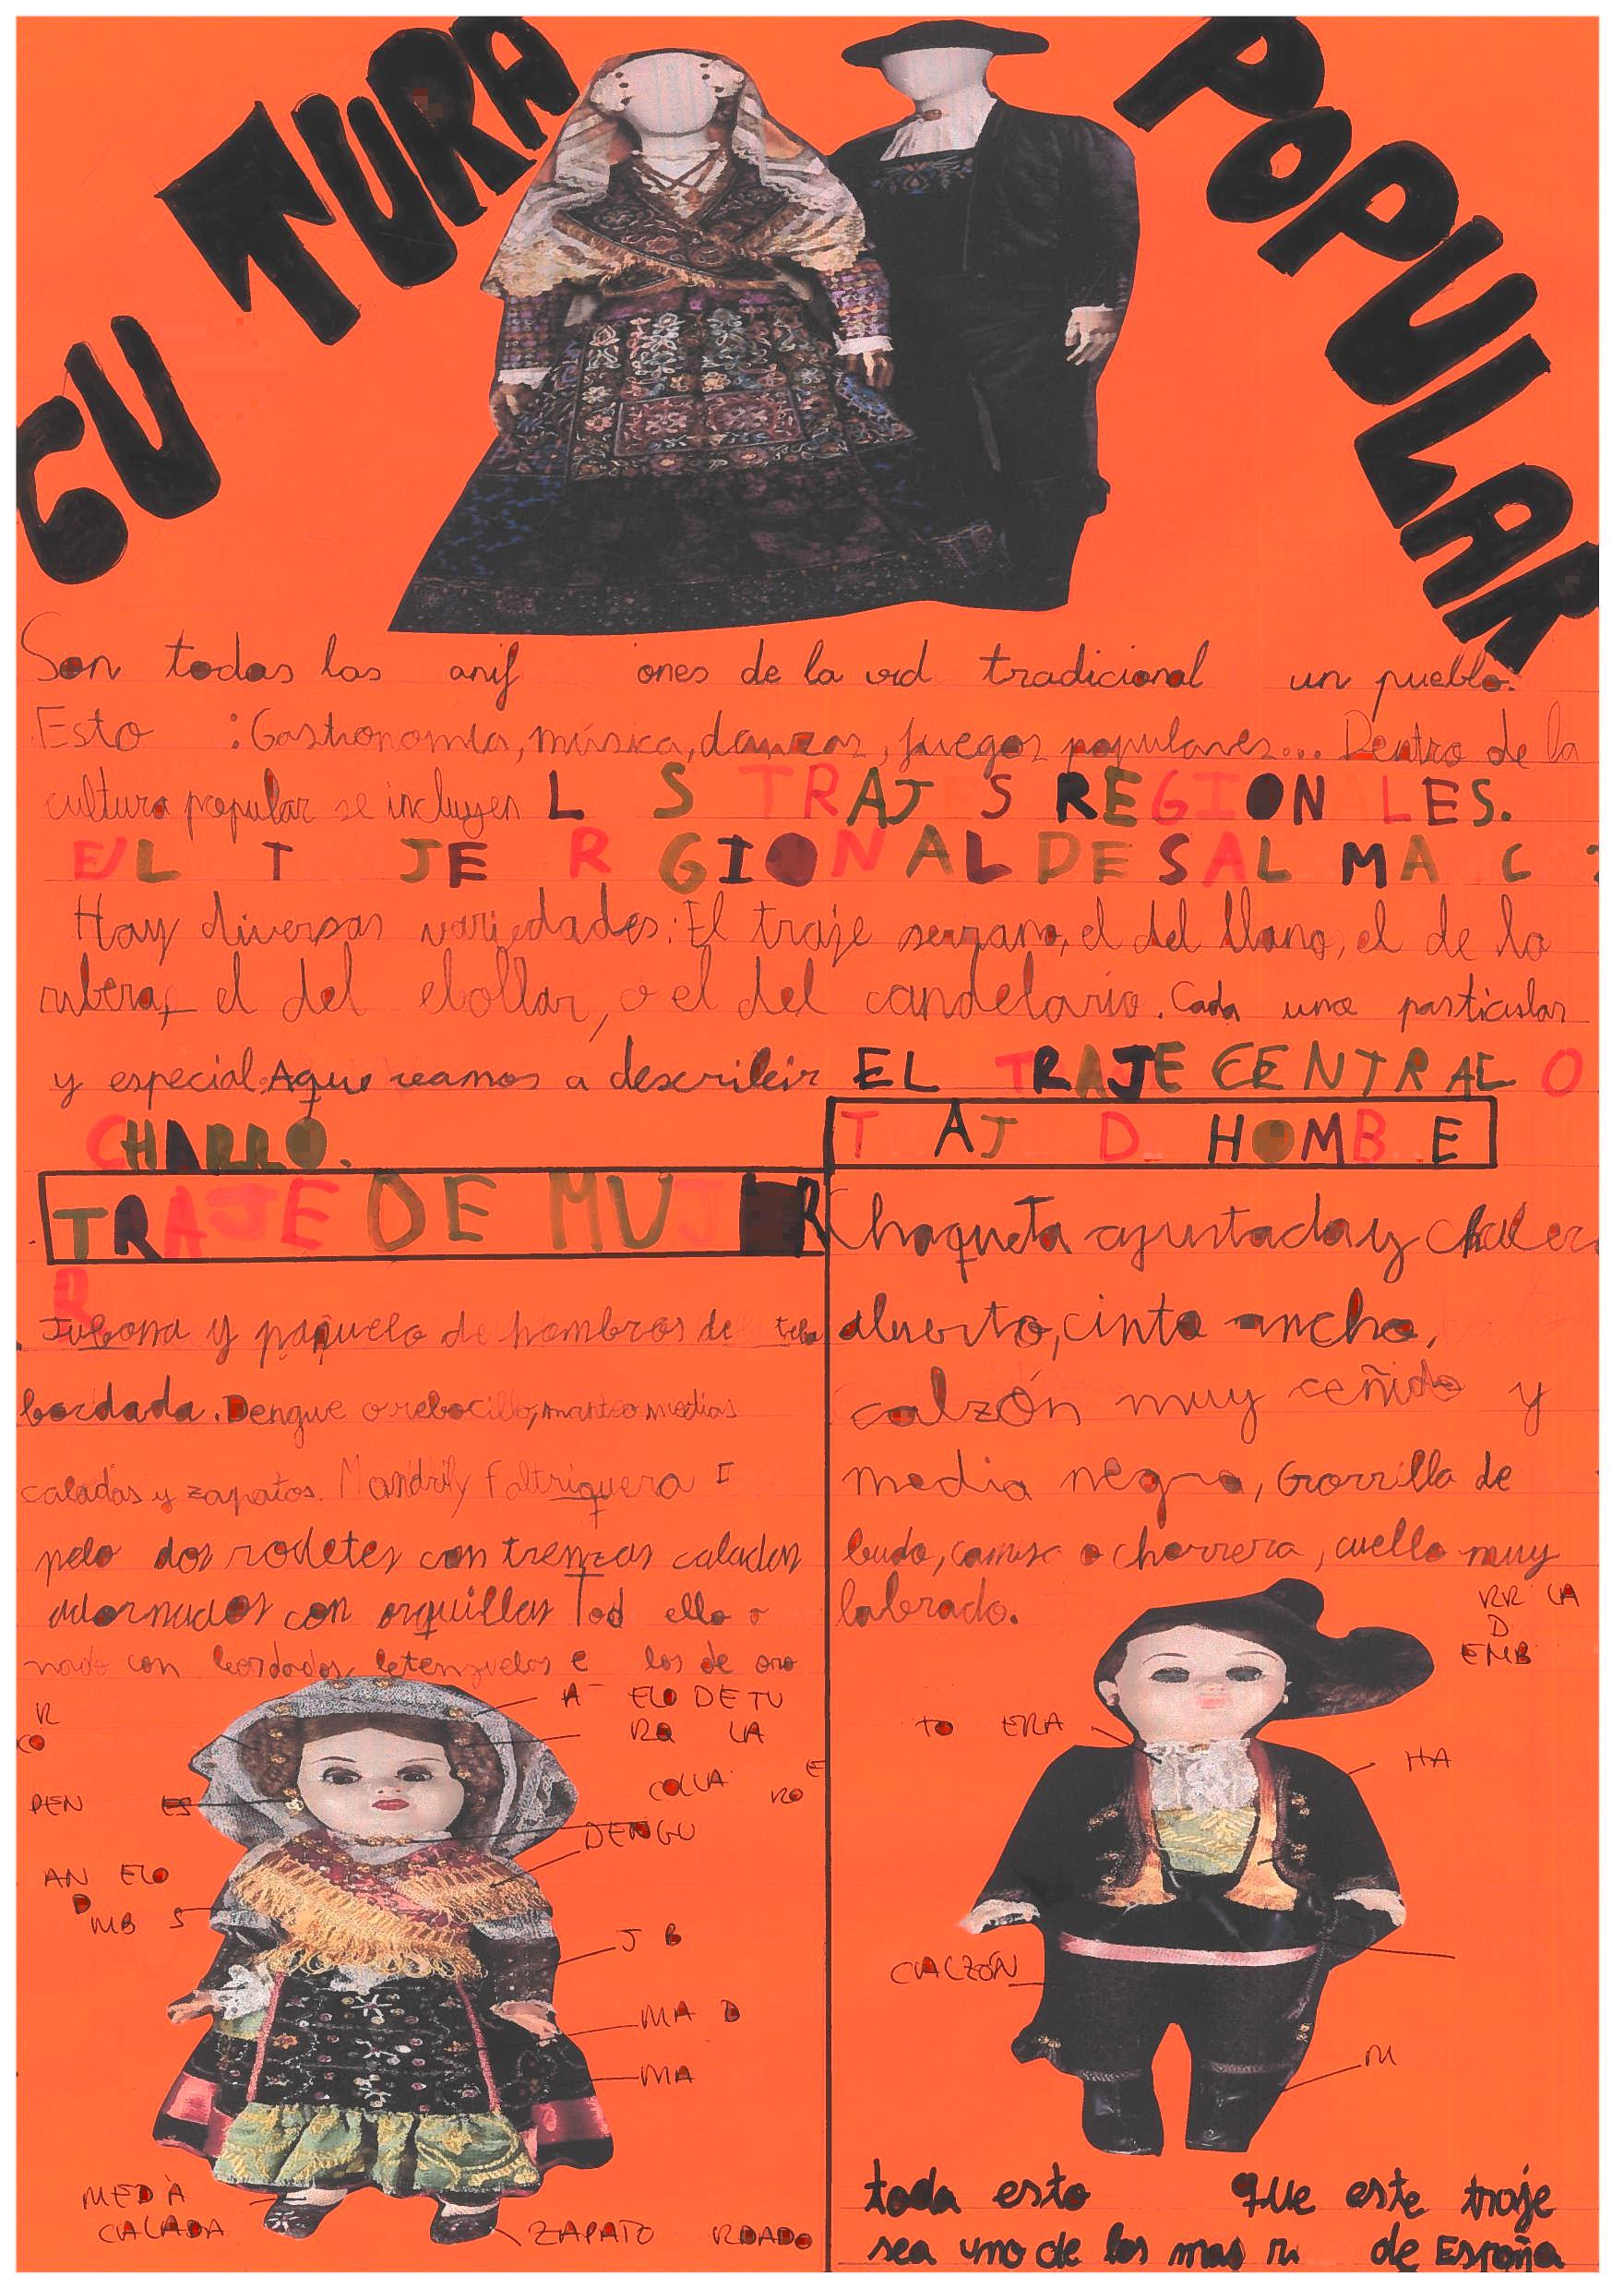 CU TURA POPULAR
Son todas las anif ones de la vid tradicional un pueblo.
Esto : Gastronomía, música, danzas, juegos populares... Dentro de la
cultura popular se incluyen L S TRAJ S REGION LES.
EL T JE R GIONAL DE SAL MA C :
Hay diversas variedades: El traje serrano, el del llano, el de la
ribera, el del ebollar, o el del candelario. Cada uno particular
y especial. Aqui veamos a describir EL TRAJE CENTRAL O
CHARRO.
TRAJE DE MUJER
Jubona y pañuelo de hombros de tela
bordada. Dengue o rebocillo, manteo medias
caladas y zapatos. Mandily Faltriquera
pelo dos rodetes con trenzas caladas
adornados con orquillas Tod ello
nado con bordados letenzuelas e los de oro
R
CO
A ELO DE TU
RQ LA
PEN ES
COLLA E RO
DENGU
AN ELO
D
MB S
J B
MA D
MA
MEDÀ
CALADA
ZAPATO RDADO
T AJ D HOMB E
Chaqueta ajustada y chalec
abierto, cinto ancho,
calzón muy ceñido y
media negra, Gorrilla de
ludo, camisa o chorrera, cuello muy
labrado.
RR LA
D
EMB
TO ERA
HA
CALZÓN
M
toda esto que este traje
sea uno de los mas ri de España